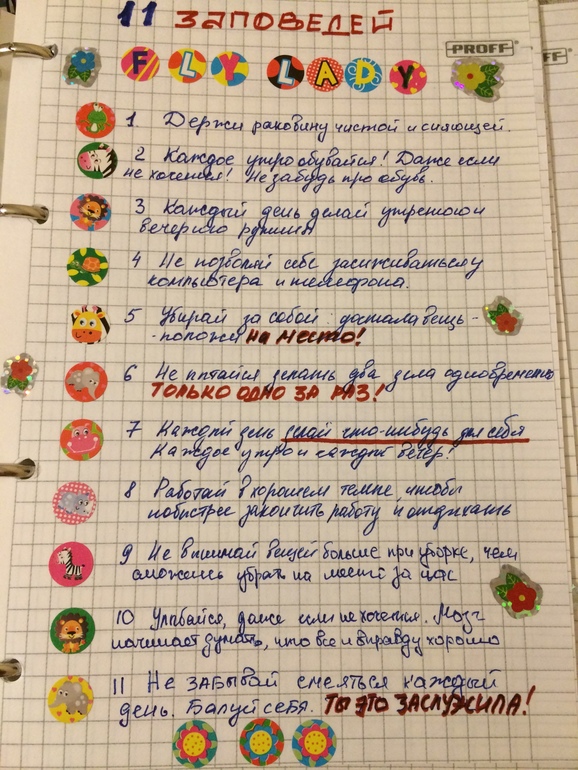 11 ЗАПОВЕДЕЙ
PROFF
FF
FLY LADY
1. Держи раковину чистой и сияющей.
2 Каждое утро обувайся! Даже если
не хочется! Не забудь про обувь.
3 Каждый день делай утреннюю и
вечернюю рутины
4 Не позволяй себе засиживаться у
компьютера и телефона.
5 Убирай за собой: достала вещь -
- положи на место!
6 Не пытайся делать два дела одновременно
ТОЛЬКО ОДНО ЗА РАЗ!
7 Каждый день делай что-нибудь для себя
Каждое утро и каждый вечер!
8 Работай в хорошем темпе, чтобы
побыстрее закончить работу и отдыхать
9 Не вынимай вещей больше при уборке, чем
сможешь убрать на место за час
10 Улыбайся, даже если не хочется. Мозг
начинает думать, что все и вправду хорошо
11 Не забывай смеяться каждый
день. Балуй себя. ТЫ ЭТО ЗАСЛУЖИЛА!